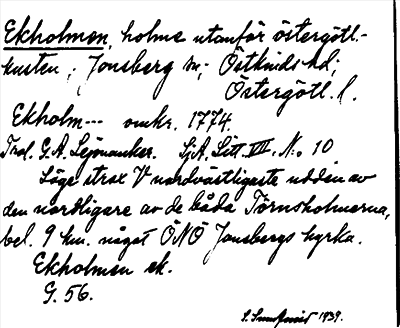 Ekholmen, holme utanför östergötl.-
kusten; Jonsbergs sn; Östkinds hd;
Östergötl. l.
Ekholm--- omkr. 1774
Trol. G. A. Lejonanker. SjA, Litt. VII, N:o 10
Läge strax V nordvästligaste udden av
den nordligare av de båda Törnsholmarna,
bel. 9 km. något ÖNÖ Jonsbergs kyrka.
Ekholmen ek.
G. 56.
1939.